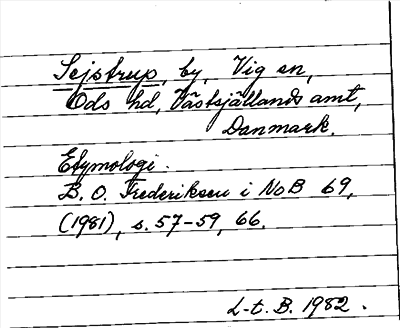 Sejstrup, by, Vig sn,
Ods hd, Västsjällands amt,
Danmark.
Etymologi.
B. O. Frederiksen i NoB 69,
(1981), s. 57-59, 66.
L-t. B. 1982.